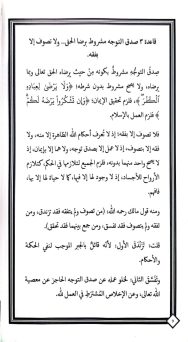 قاعدة ٣ صدق التوجه مشروط برضا الحق.. ولا تصوف إلا
بفقه.
صِدقُ التَّوجُّهِ مَشروطٌ بكونِه مِن حيثُ يرضاه الحق تعالى وبما
يرضاه، ولا يصح مشروط بدون شرطه؛ ﴿وَلَا يَرْضَىٰ لِعِبَادِهِ
ٱلْكُفْرَ﴾، فلزم تحقيق الإيمان؛ ﴿وَإِن تَشْكُرُوا۟ يَرْضَهُ لَكُمْ﴾،
فلزم العمل بالإسلام.
فلا تصوف إلا بفقه؛ إذ لا تعرف أحكام الله الظاهرة إلا منه، ولا
فقه إلا بتصوف، إذ لا عمل إلا بصدق توجه، ولا هما إلا بإيمان، إذ لا
يصح واحد منهما بدونه، فلزم الجميع لتلازمها في الحكم، كتلازم
الأرواح للأجساد، إذ لا وجود لها إلا فيها، كما لا حياة لها إلا بها،
فافهم.
ومنه قول مالك رحمه الله: (من تصوف ولم يتفقه فقد تزندق، ومن
تفقه ولم يتصوف فقد تفسق، ومن جمع بينهما فقد تحقق).
قلت: تَزَنْدَقَ الأول؛ لأنه قائلٌ بالجبر الموجب لنفي الحكمة
والأحكام.
وتَفَسَّقَ الثاني؛ لخلو عمله عن صدق التوجه الحاجز عن معصية
الله تعالى، وعن الإخلاص المُشترَط في العمل لله.